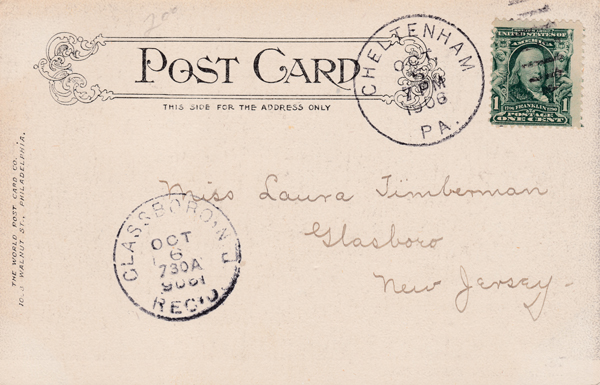 200
POST CARD
THIS SIDE FOR THE ADDRESS ONLY
CHELTENHAM
OCT
7 PM
1906
PA.
UNITED STATES OF
AMERICA
FRANKLIN
1 1
POSTAGE
ONE CENT
Miss Laura Timberman
Glasboro
New Jersey
GLASSBORO, N.J.
OCT
6
730A
1906
REC'D.
THE WORLD POST CARD CO.
WALNUT ST., PHILADELPHIA.